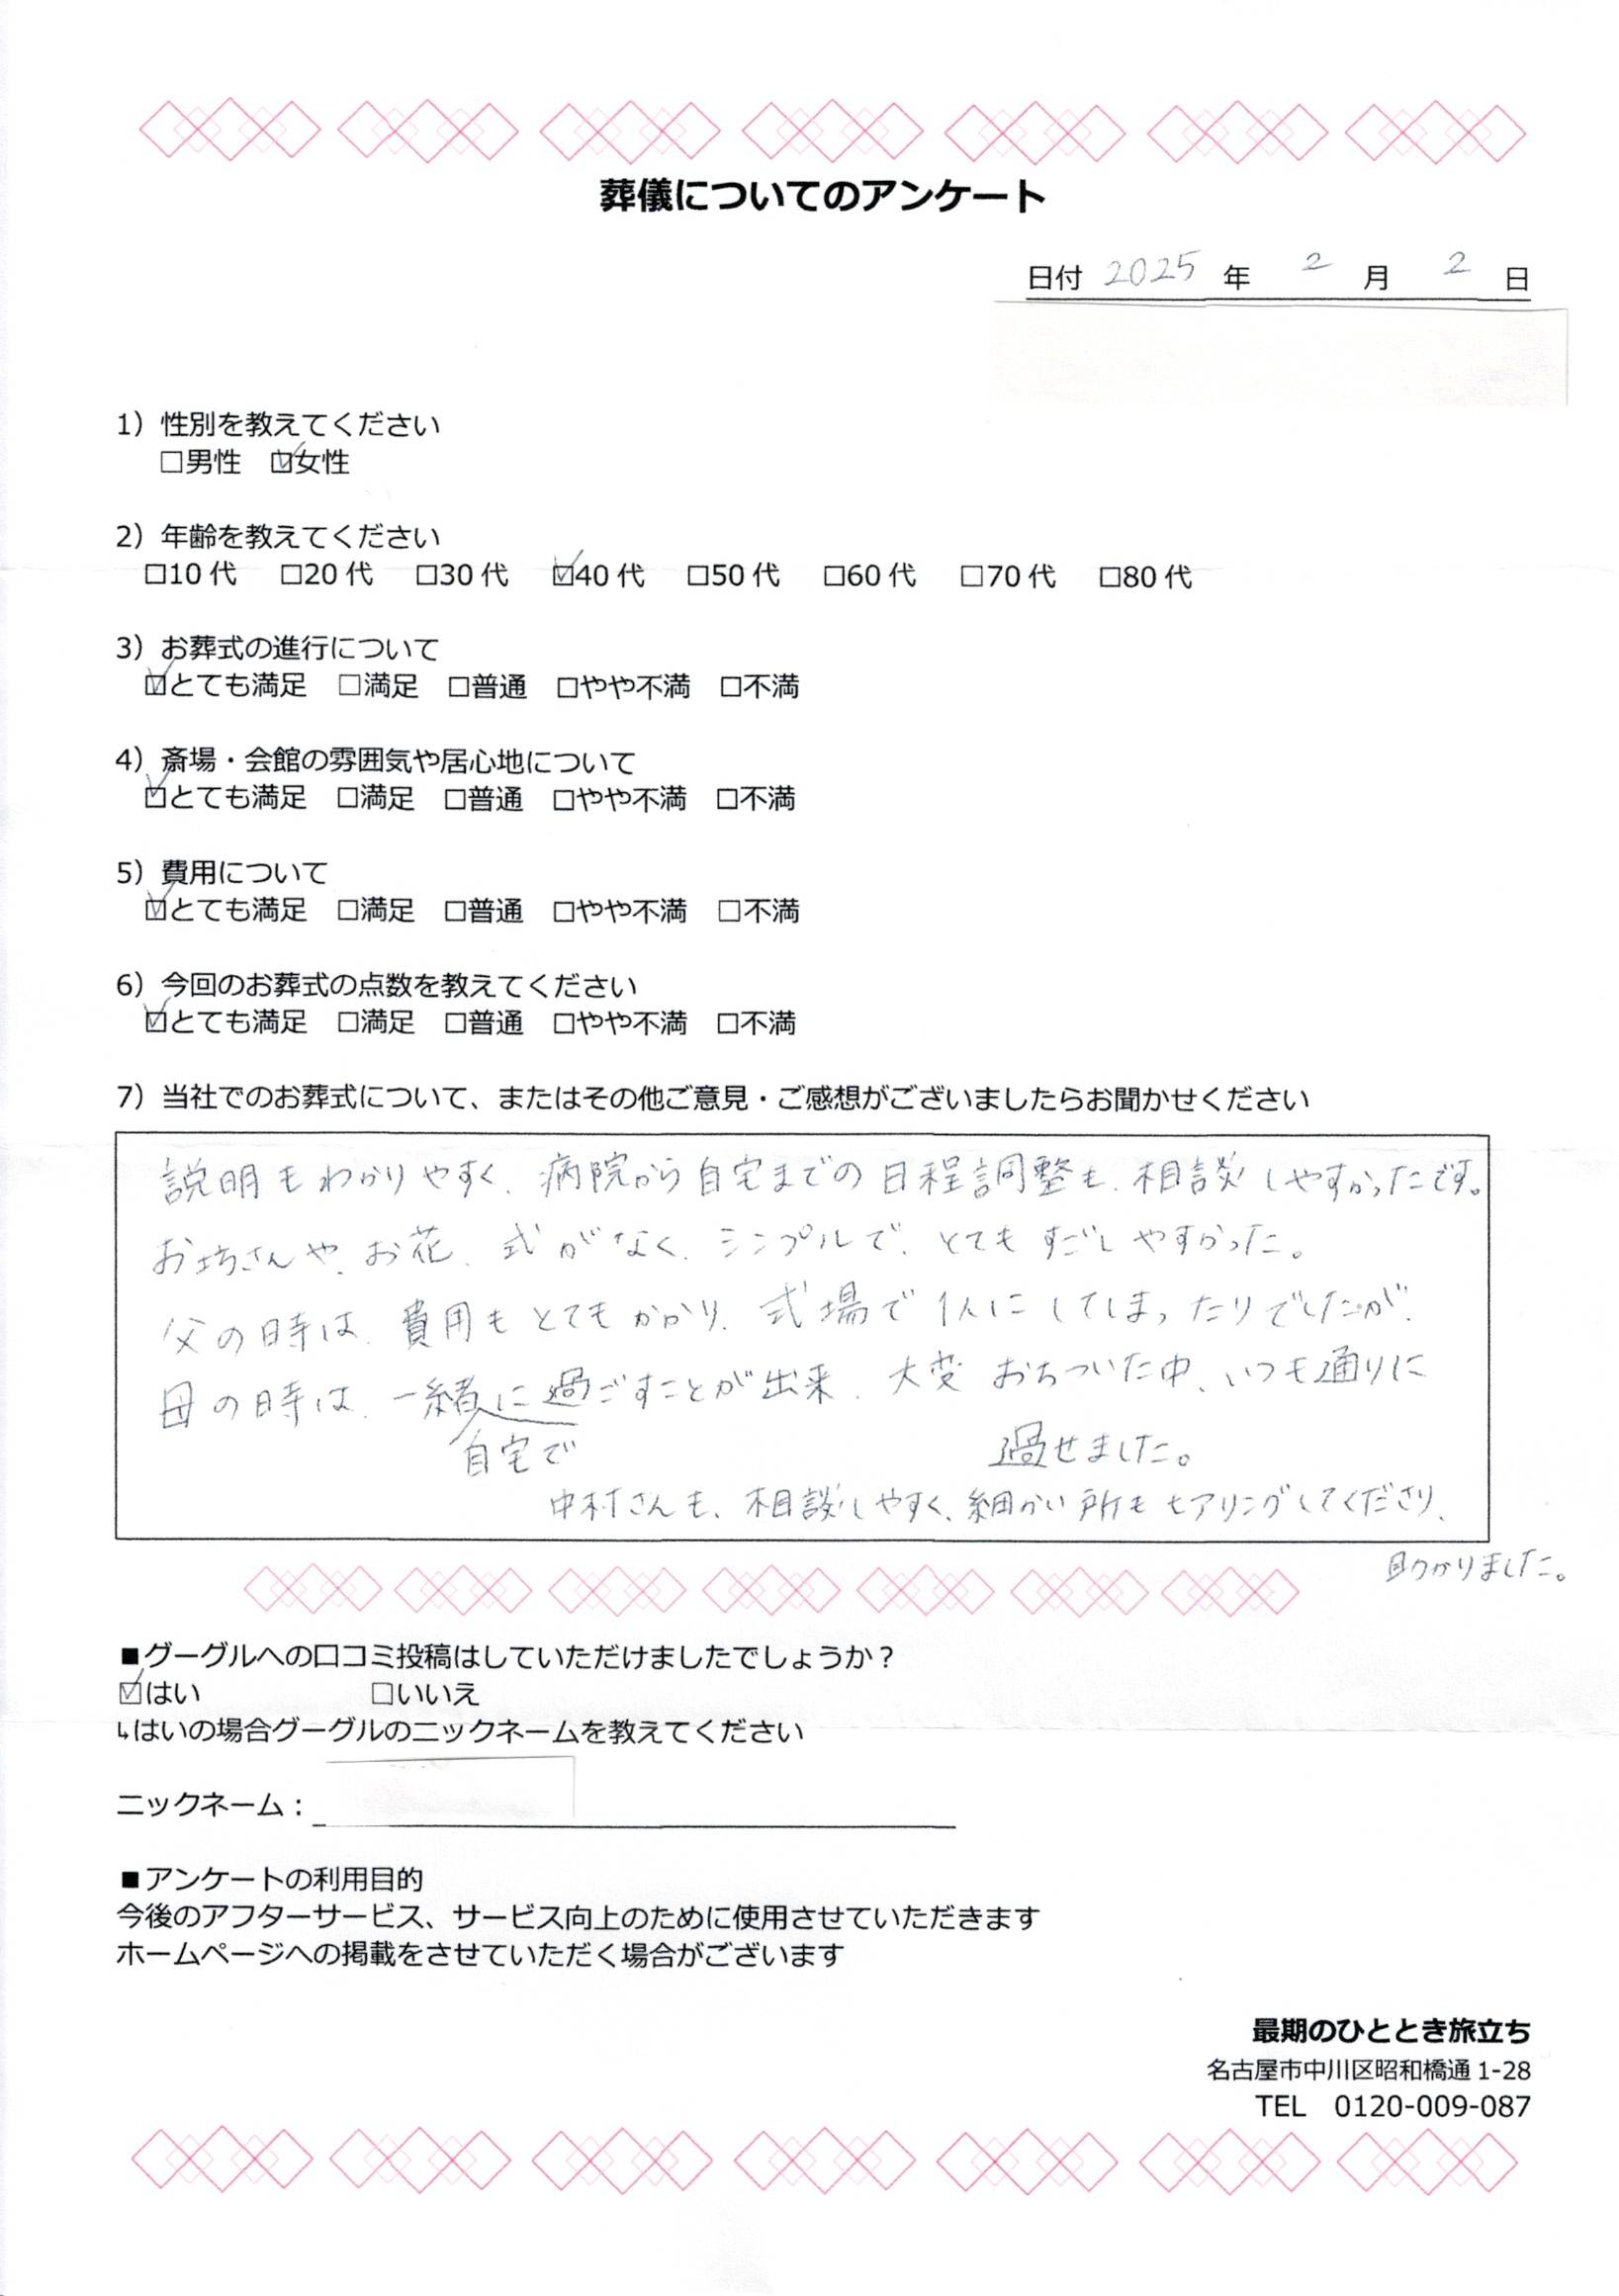 葬儀についてのアンケート
日付 2025 年 2 月 2 日
1）性別を教えてください
□男性 ☑女性
2）年齢を教えてください
□10代 □20代 □30代 ☑40代 □50代 □60代 □70代 □80代
3）お葬式の進行について
☑とても満足 □満足 □普通 □やや不満 □不満
4）斎場・会館の雰囲気や居心地について
☑とても満足 □満足 □普通 □やや不満 □不満
5）費用について
☑とても満足 □満足 □普通 □やや不満 □不満
6）今回のお葬式の点数を教えてください
☑とても満足 □満足 □普通 □やや不満 □不満
7）当社でのお葬式について、またはその他ご意見・ご感想がございましたらお聞かせください
説明もわかりやすく、病院から自宅までの日程調整も、相談しやすかったです。
お坊さんや、お花、式がなく、シンプルで、とてもすごしやすかった。
父の時は、費用もとてもかかり、式場で1人にしてしまったりでしたが、
母の時は、一緒に過ごすことが出来、大変おちついた中、いつも通りに
自宅で
過せました。
中村さんも、相談しやすく、細かい所もヒアリングしてくださり、
助かりました。
■グーグルへの口コミ投稿はしていただけましたでしょうか？
☑はい □いいえ
↳はいの場合グーグルのニックネームを教えてください
ニックネーム：
■アンケートの利用目的
今後のアフターサービス、サービス向上のために使用させていただきます
ホームページへの掲載をさせていただく場合がございます
最期のひととき旅立ち
名古屋市中川区昭和橋通1-28
TEL 0120-009-087